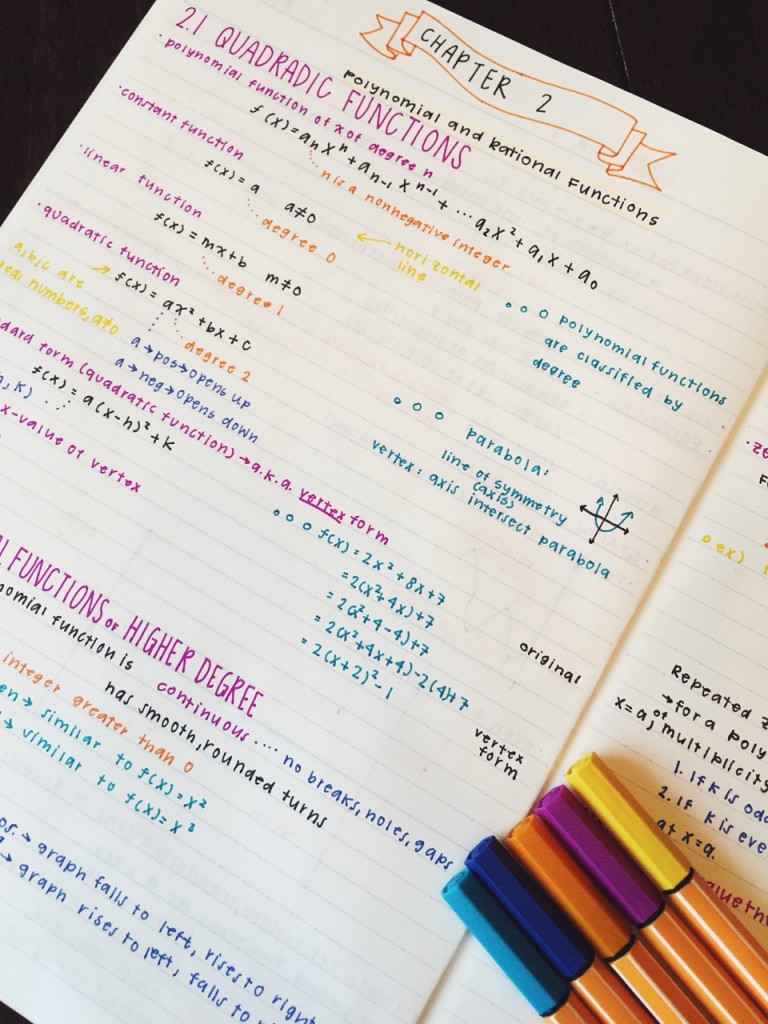 CHAPTER 2
Polynomial and Rational Functions
2.1 QUADRADIC FUNCTIONS
· polynomial function of x of degree n
f(x) = aₙxⁿ + aₙ₋₁xⁿ⁻¹ + ... a₂x² + a₁x + a₀
n is a nonnegative integer
· constant function
f(x) = a a≠0
degree 0
← horizontal
line
· linear function
f(x) = mx+b m≠0
degree 1
ooo polynomial functions
are classified by
degree
· quadratic function
a,b,c are →
real numbers, a≠0
f(x) = ax² + bx + c
degree 2
a→pos→opens up
a→neg→opens down
ooo parabola:
line of symmetry
(axis)
vertex: axis intersect parabola
form (quadratic function) → a.k.a. vertex form
f(x) = a(x-h)² + k
, k)
x-value of vertex
ooo f(x) = 2x² + 8x + 7
= 2(x²+4x)+7
= 2(x²+4-4)+7
= 2(x²+4x+4)-2(4)+7
= 2(x+2)²-1
original
vertex
form
FUNCTIONS of HIGHER DEGREE
function is continuous .... no breaks, holes, gaps
has smooth, rounded turns
integer greater than 0
→ similar to f(x) = x²
→ similar to f(x) = x³
→ graph falls to left, rises to right
→ graph rises to left, falls to
ex)
Repeated
→ for a
x=a, of multiplicity
1. If k is
2. If k is
at x=a.